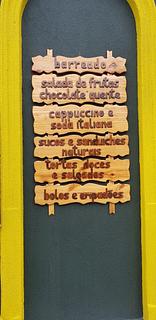 barreado
salada de frutas
chocolate quente
cappuccino e
soda italiana
sucos e sanduches
naturais
tortas doces
e salgadas
bolos e empadões